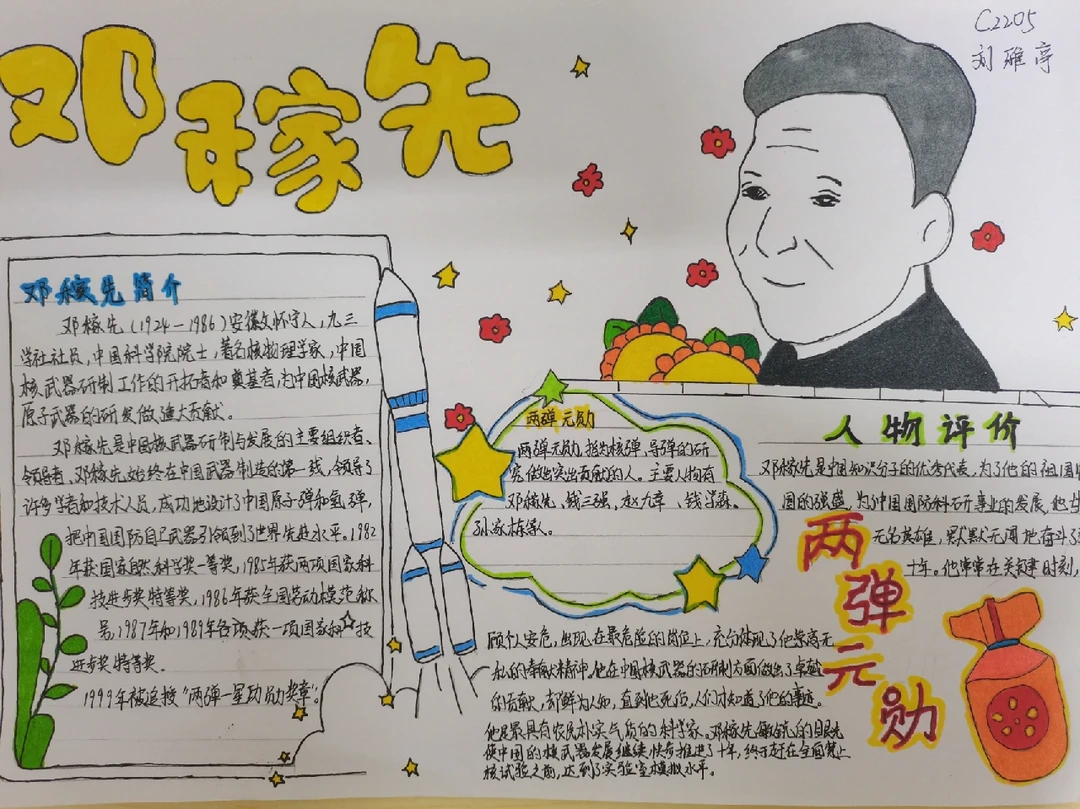 邓稼先
C2205
刘雅亭
邓稼先简介
邓稼先(1924—1986)安徽文怀宁人,九三
学社社员,中国科学院院士,著名核物理学家,中国
核武器研制工作的开拓者和奠基者,为中国核武器,
原子武器的研发做 大贡献。
邓稼先是中国核武器研制与发展的主要组织者、
领导者,邓稼先始终在中国武器制造的第一线,领导了
许多学者和技术人员,成功地设计了中国原子弹和氢弹,
把中国国防自卫武器引领到了世界先进水平。1982
年获国家自然科学奖一等奖,1985年获两项国家科
技进步奖特等奖,1986年获全国劳动模范称
号,1987年和1989年各项获一项国家科技
进步奖特等奖。
1999年被追授"两弹一星功勋奖章"。
两弹元勋
两弹元勋,指为核弹,导弹的研
究做出突出贡献的人。主要人物有
邓稼先、钱三强,赵九章、钱学森。
孙家栋等。
人物评价
邓稼先是中国知识分子的优秀代表,为了他的祖国
国的强盛,为了中国国防科研事业的发展,他
无名英雄,默默无闻地奋斗了
十年。他常常在关键时刻,
两弹元勋
顾个人安危,出现在最危险的岗位上,充分体现了他崇高无
私的奉献精神,他在中国核武器的研制方面做出了卓越
的贡献,却鲜为人知,直到他死后,人们才知道了他的事迹。
他是最具有农民朴实气质的科学家。邓稼先敏锐的目光
使中国的核武器发展继续快步推进了十年,终于赶在全面禁止
核试验之前,达到了实验室模拟水平。